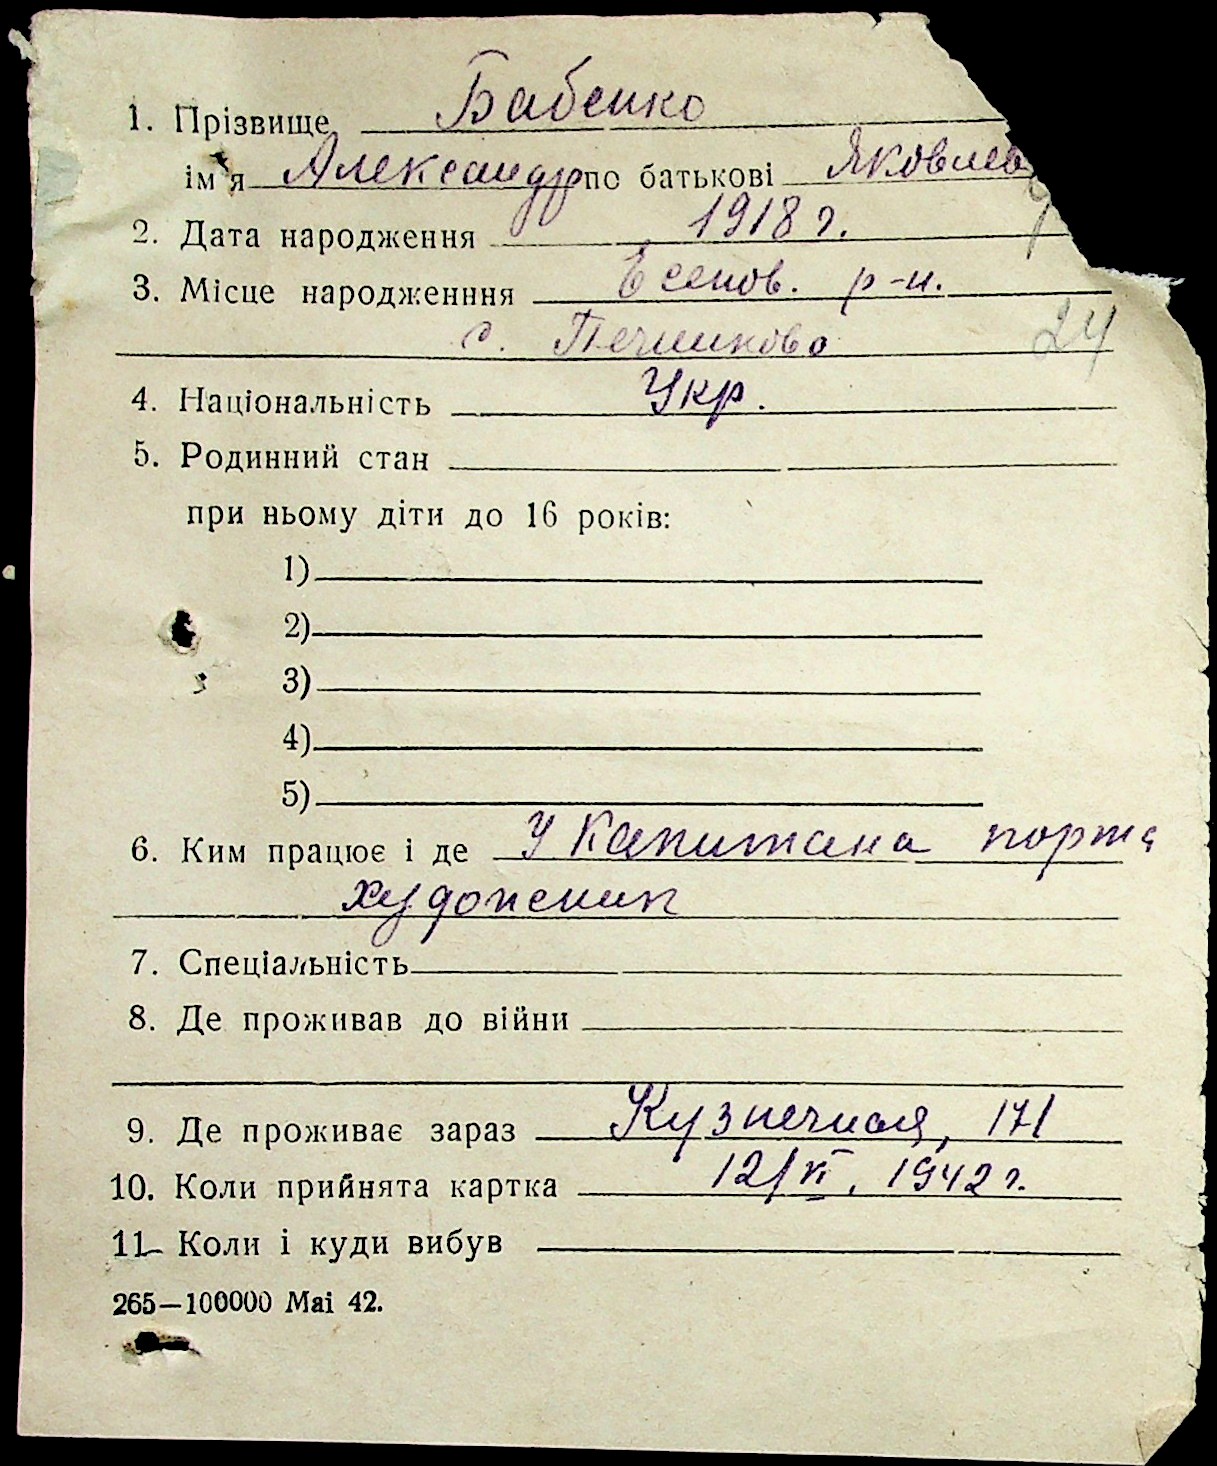 1. Прізвище Бабенко
ім'я Александр по батькові Яковлев
2. Дата народження 1918 г.
3. Місце народженння р-н.
с. Печниково 24
4. Національність Укр.
5. Родинний стан
при ньому діти до 16 років:
1)
2)
3)
4)
5)
6. Ким працює і де У Капитана порта
художник
7. Спеціальність
8. Де проживав до війни
9. Де проживає зараз Кузнечная, 171
10. Коли прийнята картка 12/VI. 1942 г.
11. Коли і куди вибув
265—100000 Mai 42.